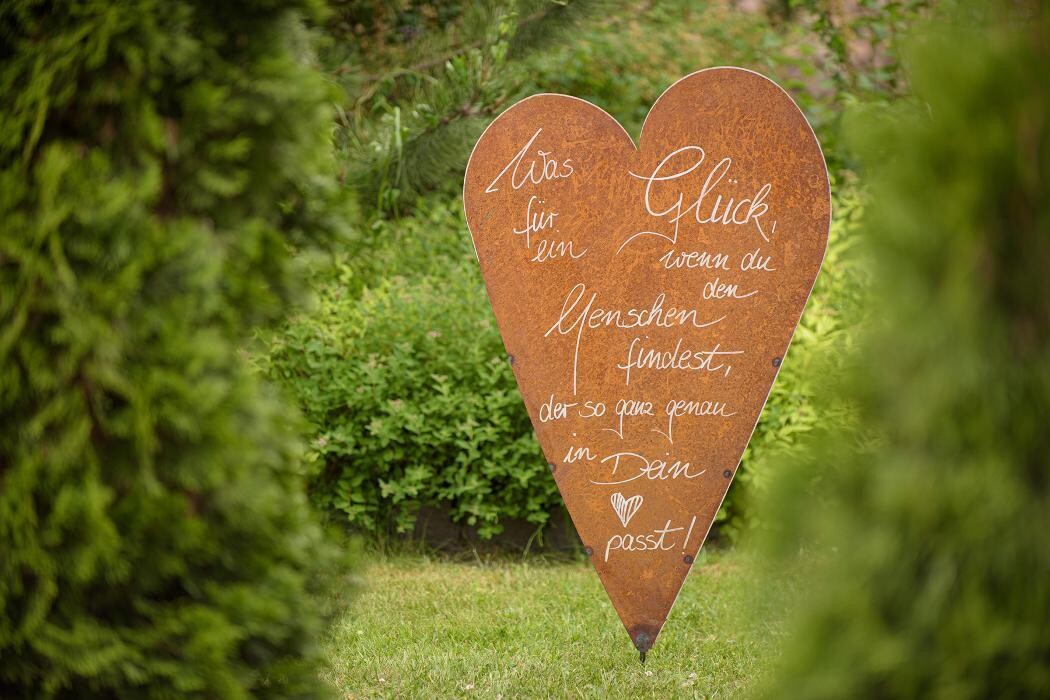 Was
für
ein
Glück,
wenn du
den
Menschen
findest,
der so ganz genau
in Dein
passt!